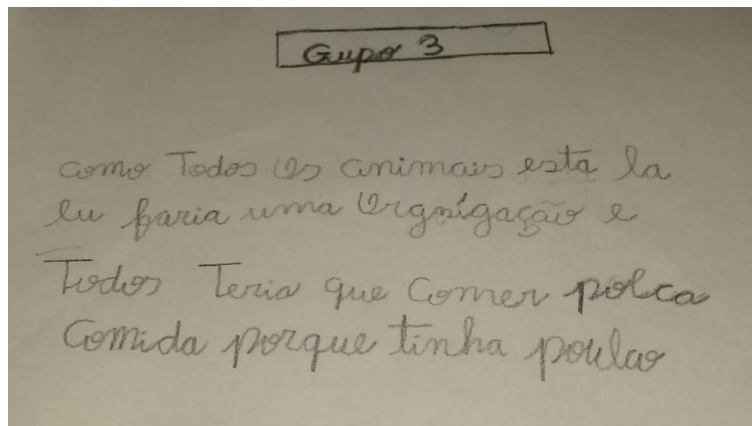 Gupo 3
como Todos Os animais esta la
eu faria uma Orgnígação e
Todos Teria que Comer polca
Comida porque tinha poulao